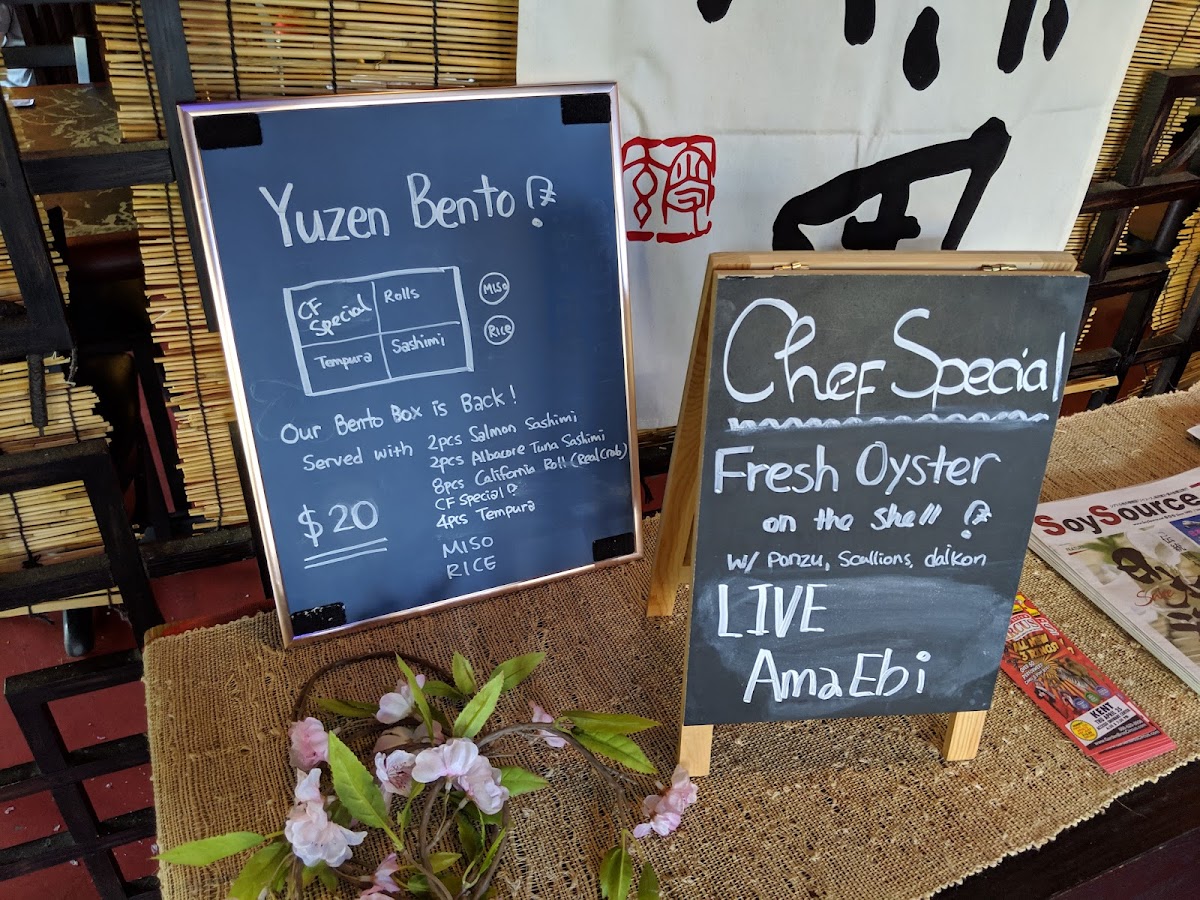 Yuzen Bento
CF Special
Rolls
Tempura
Sashimi
MISO
RICE
Our Bento Box is Back!
Served with 2pcs Salmon Sashimi
2pcs Albacore Tuna Sashimi
8pcs California Roll (Real Crab)
CF Special
4pcs Tempura
MISO
RICE
$20
Chef Special
Fresh Oyster
on the shell
w/ Ponzu, Scallions, daikon
LIVE
Ama Ebi
SoySource
KENT